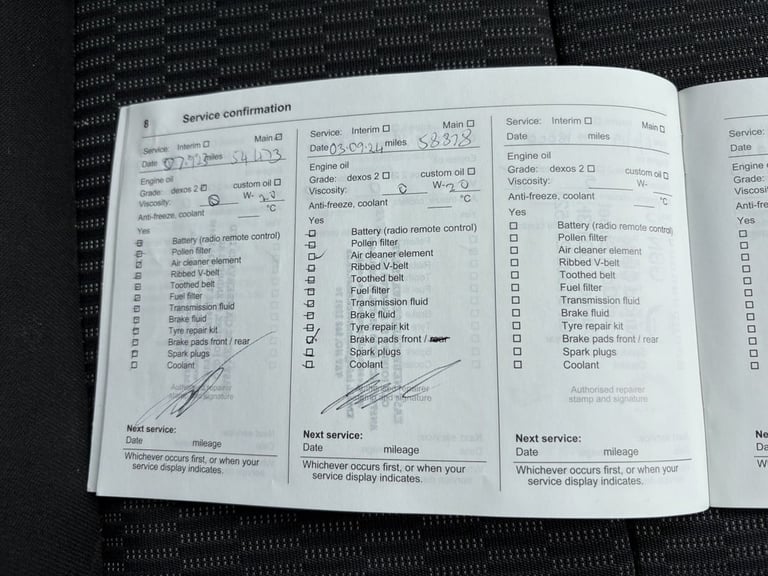 8 Service confirmation
Service: Interim Main
Date miles 54
Engine oil
Grade: dexos 2 custom oil
Viscosity: 0 W- 20
Anti-freeze, coolant °C
Yes
Battery (radio remote control)
Pollen filter
Air cleaner element
Ribbed V-belt
Toothed belt
Fuel filter
Transmission fluid
Brake fluid
Tyre repair kit
Brake pads front / rear
Spark plugs
Coolant
Authorised repairer
stamp and signature
Next service:
Date mileage
Whichever occurs first, or when your
service display indicates.
Service: Interim Main
Date 03.09.24 miles 58878
Engine oil
Grade: dexos 2 custom oil
Viscosity: 0 W- 20
Anti-freeze, coolant °C
Yes
Battery (radio remote control)
Pollen filter
Air cleaner element
Ribbed V-belt
Toothed belt
Fuel filter
Transmission fluid
Brake fluid
Tyre repair kit
Brake pads front / rear
Spark plugs
Coolant
Authorised repairer
stamp and signature
Next service:
Date mileage
Whichever occurs first, or when your
service display indicates.
Service: Interim Main
Date miles
Engine oil
Grade: dexos 2 custom oil
Viscosity: W-
Anti-freeze, coolant °C
Yes
Battery (radio remote control)
Pollen filter
Air cleaner element
Ribbed V-belt
Toothed belt
Fuel filter
Transmission fluid
Brake fluid
Tyre repair kit
Brake pads front / rear
Spark plugs
Coolant
Authorised repairer
stamp and signature
Next service:
Date mileage
Whichever occurs first, or when your
service display indicates.
Service:
Date
Engine
Grade:
Viscosi
Anti-fre
Yes
Ne
Da
W